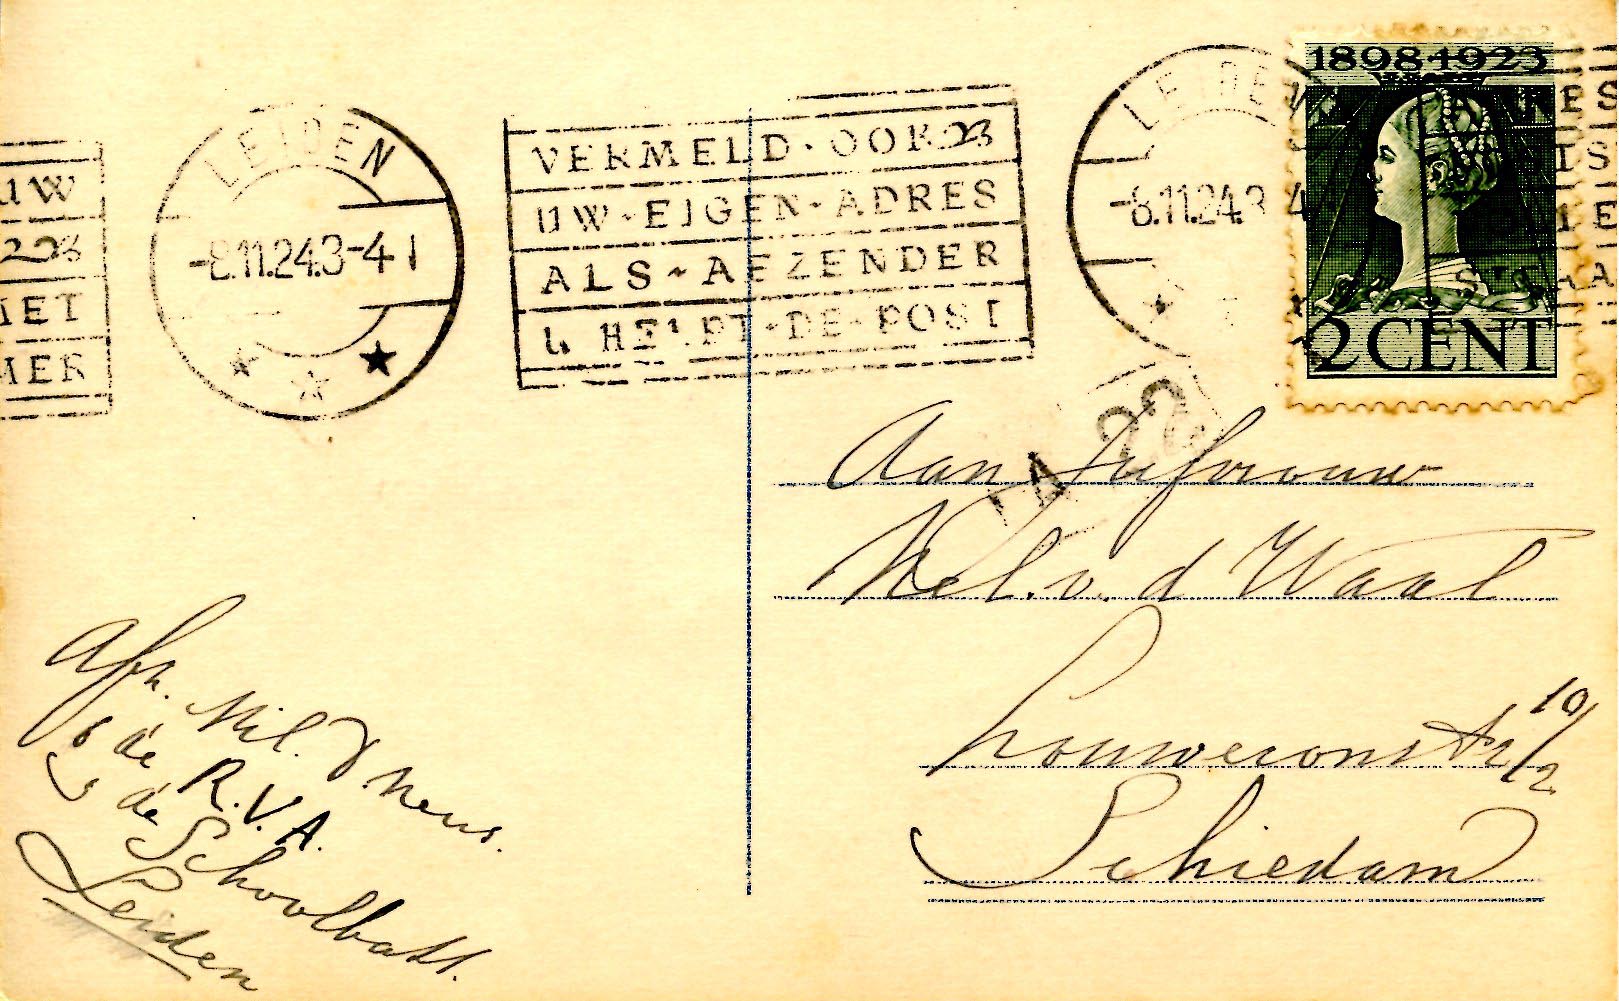 UW
ET
MER
LEIDEN
-8.11.24.3-4 N
VERMELD · OOK
UW - EIGEN - ADRES
ALS ~ AFZENDER
HELPT - DE - POST
LEIDEN
-8.11.24.3 4
1898-1923
2 CENT
Aan Jufvrouw
Nel. v. d Waal
Louweronstr 10/2
Schiedam
Afz. Mil. D
6 de R.V.A.
3 de Schoolbatt.
Leiden